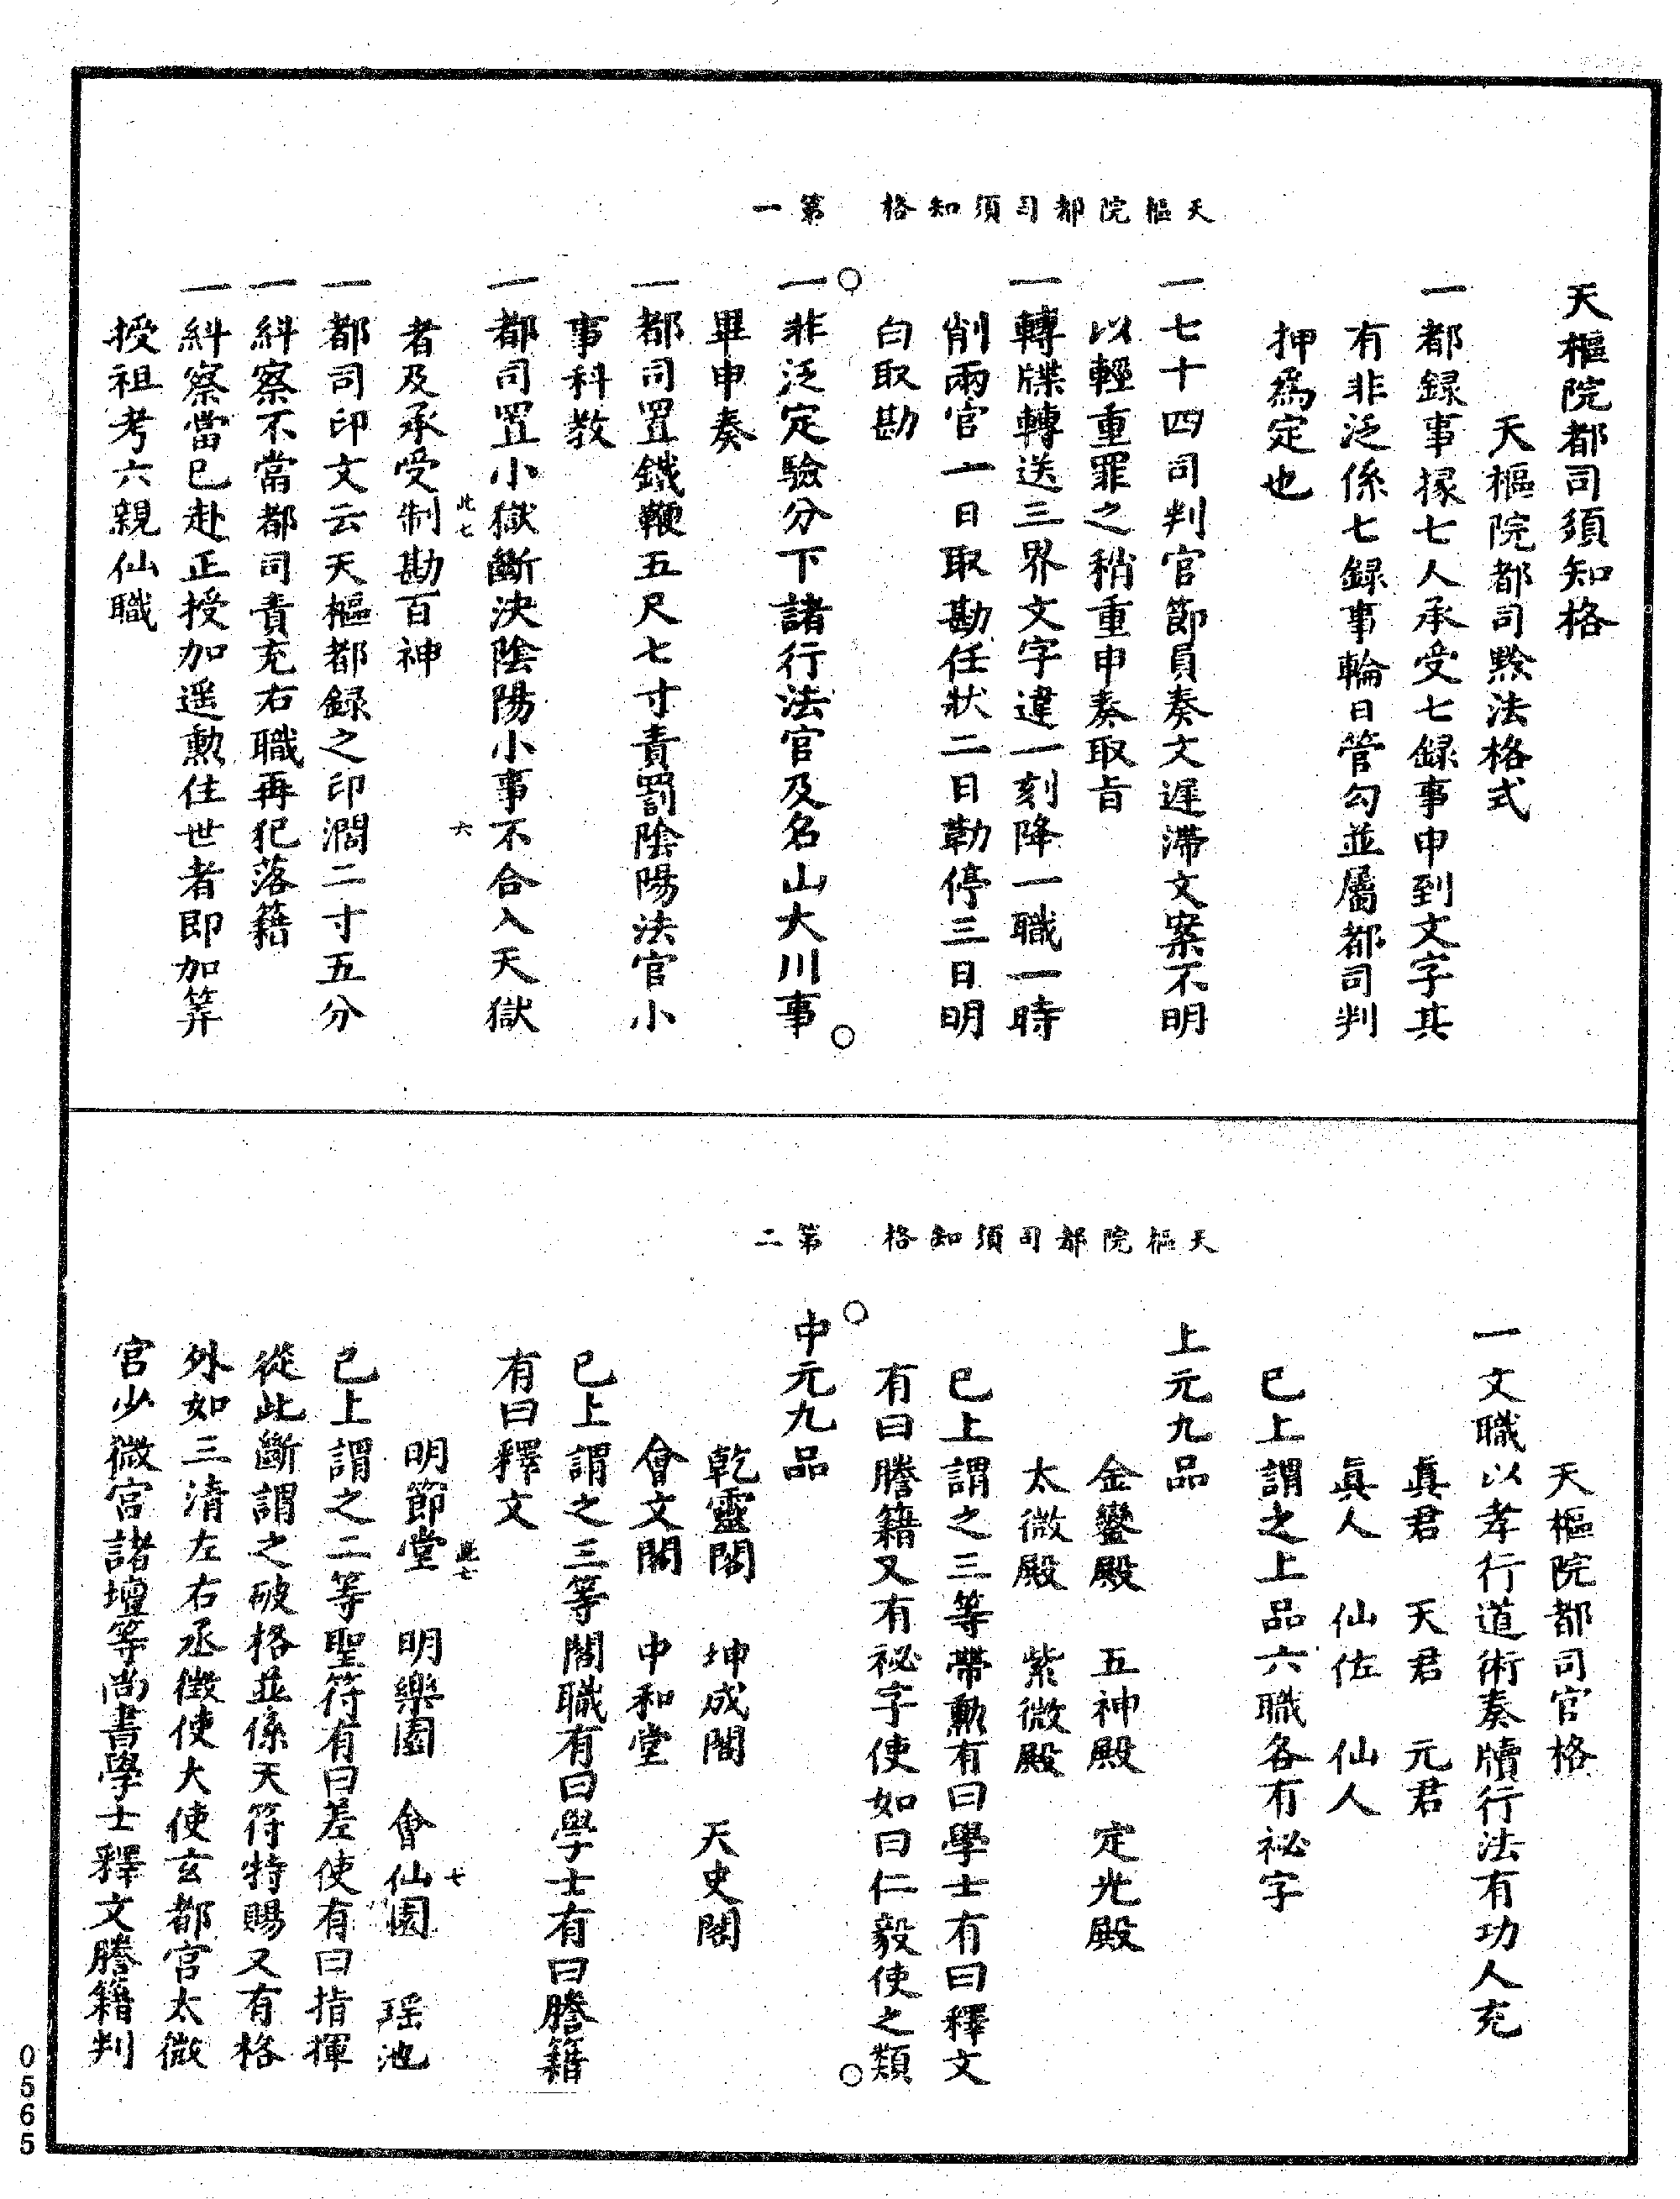 天樞院都司須知格　第一
天樞院都司須知格
天樞院都司黲法格式
一都録事掾七人承受七録事申到文字其
有非泛係七録事輪日管勾並屬都司判
押爲定也
一七十四司判官節員奏文遲滯文案不明
以輕重罪之稍重申奏取旨
一轉牒轉送三界文字違一刻降一職一時
削兩官一日取勘任狀二日勒停三日明
白取勘
一非泛定驗分下諸行法官及名山大川事
畢申奏
一都司置鐵鞭五尺七寸責罰陰陽法官小
事科教
一都司置小獄斷決陰陽小事不合入天獄
此七　六
者及承受制勘百神
一都司印文云天樞都録之印濶二寸五分
一糾察不當都司責充右職再犯落籍
一糾察當已赴正授加遥勲住世者即加筭
授祖考六親仙職
天樞院都司須知格　第二
天樞院都司官格
一文職以孝行道術奏牘行法有功人充
真君　天君　元君
真人　仙佐　仙人
已上謂之上品六職各有祕字
上元九品
金鑾殿　五神殿　定光殿
太微殿　紫微殿
已上謂之三等帶勲有曰學士有曰釋文
有曰謄籍又有祕字使如曰仁毅使之類
中元九品
乾靈閣　坤成閣　天史閣
會文閣　中和堂
已上謂之三等閣職有曰學士有曰謄籍
有曰釋文
此七　七
明節堂　明樂園　會仙園　瑶池
已上謂之二等聖符有曰差使有曰指揮
從此斷謂之破格並係天符特賜又有格
外如三清左右丞徴使大使玄都宫太微
宫少微宫諸壇等尚書學士釋文謄籍判
0565